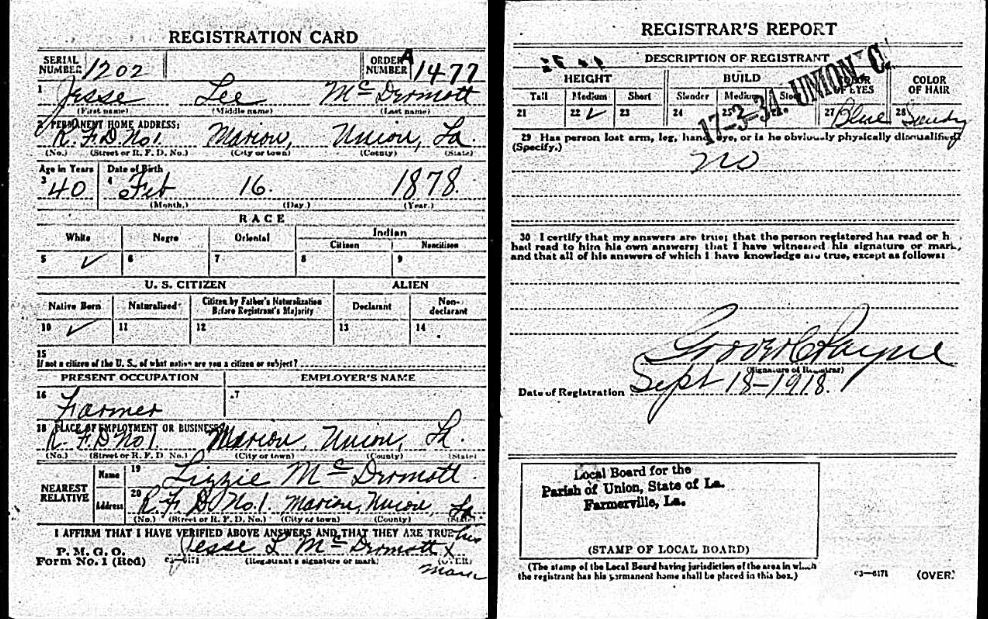 REGISTRATION CARD
SERIAL NUMBER 1202
ORDER NUMBER A 1477
1 Jesse Lee McDromott
(First name) (Middle name) (Last name)
2 PERMANENT HOME ADDRESS:
R. F. D. No 1. Marion, Union, La
(No.) (Street or R. F. D. No.) (City or town) (County) (State)
Age in Years Date of Birth
3 40 4 Feb 16. 1878.
(Month.) (Day.) (Year.)
RACE
White Negro Oriental Indian
Citizen Noncitizen
5 ✓ 6 7 8 9
U. S. CITIZEN ALIEN
Native Born Naturalized Citizen by Father's Naturalization Before Registrant's Majority Declarant Non-declarant
10 ✓ 11 12 13 14
15
If not a citizen of the U. S., of what nation are you a citizen or subject?
PRESENT OCCUPATION EMPLOYER'S NAME
16 Farmer 17
18 PLACE OF EMPLOYMENT OR BUSINESS:
R. F. D No 1. Marion, Union, La.
(No.) (Street or R. F. D. No.) (City or town) (County) (State)
NEAREST RELATIVE
Name 19 Lizzie McDromott
Address 20 R. F. D No. 1. Marion, Union, La.
(No.) (Street or R. F. D. No.) (City or town) (County) (State)
I AFFIRM THAT I HAVE VERIFIED ABOVE ANSWERS AND THAT THEY ARE TRUE
P. M. G. O.
Form No. 1 (Red) c3—6171
Jesse L McDromott his x mark
(Registrant's signature or mark) (OVER)
REGISTRAR'S REPORT
DESCRIPTION OF REGISTRANT
HEIGHT BUILD COLOR OF EYES COLOR OF HAIR
Tall Medium Short Slender Medium Stout
21 22 ✓ 23 27 Blue 28 Sandy
17-3-34 UNION C.
29 Has person lost arm, leg, hand, eye, or is he obviously physically disqualified?
(Specify.)
no
30 I certify that my answers are true; that the person registered has read or h
had read to him his own answers; that I have witnessed his signature or mark,
and that all of his answers of which I have knowledge are true, except as follows:
Grover C Payne
(Signature of Registrar)
Date of Registration Sept 18-1918.
Local Board for the
Parish of Union, State of La.
Farmerville, La.
(STAMP OF LOCAL BOARD)
(The stamp of the Local Board having jurisdiction of the area in which
the registrant has his permanent home shall be placed in this box.)
c3—6171 (OVER)